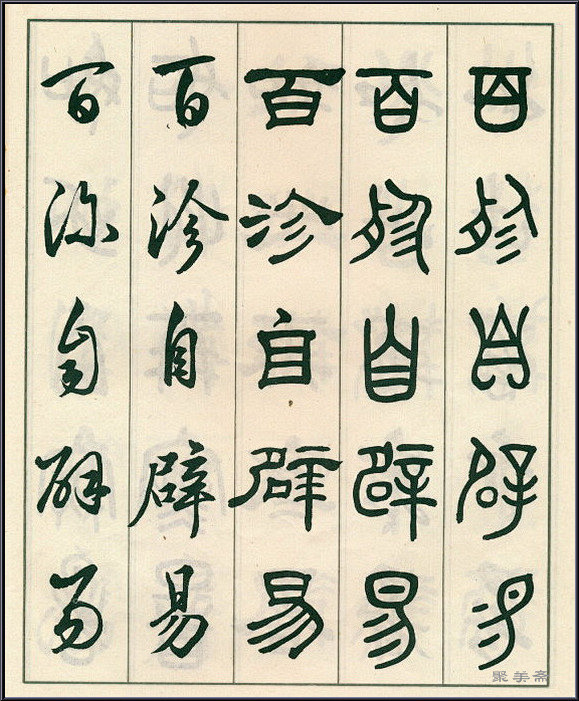 百沴自辟易
百沴自辟易
百沴自辟易
百沴自辟易
百沴自辟易
聚美斋